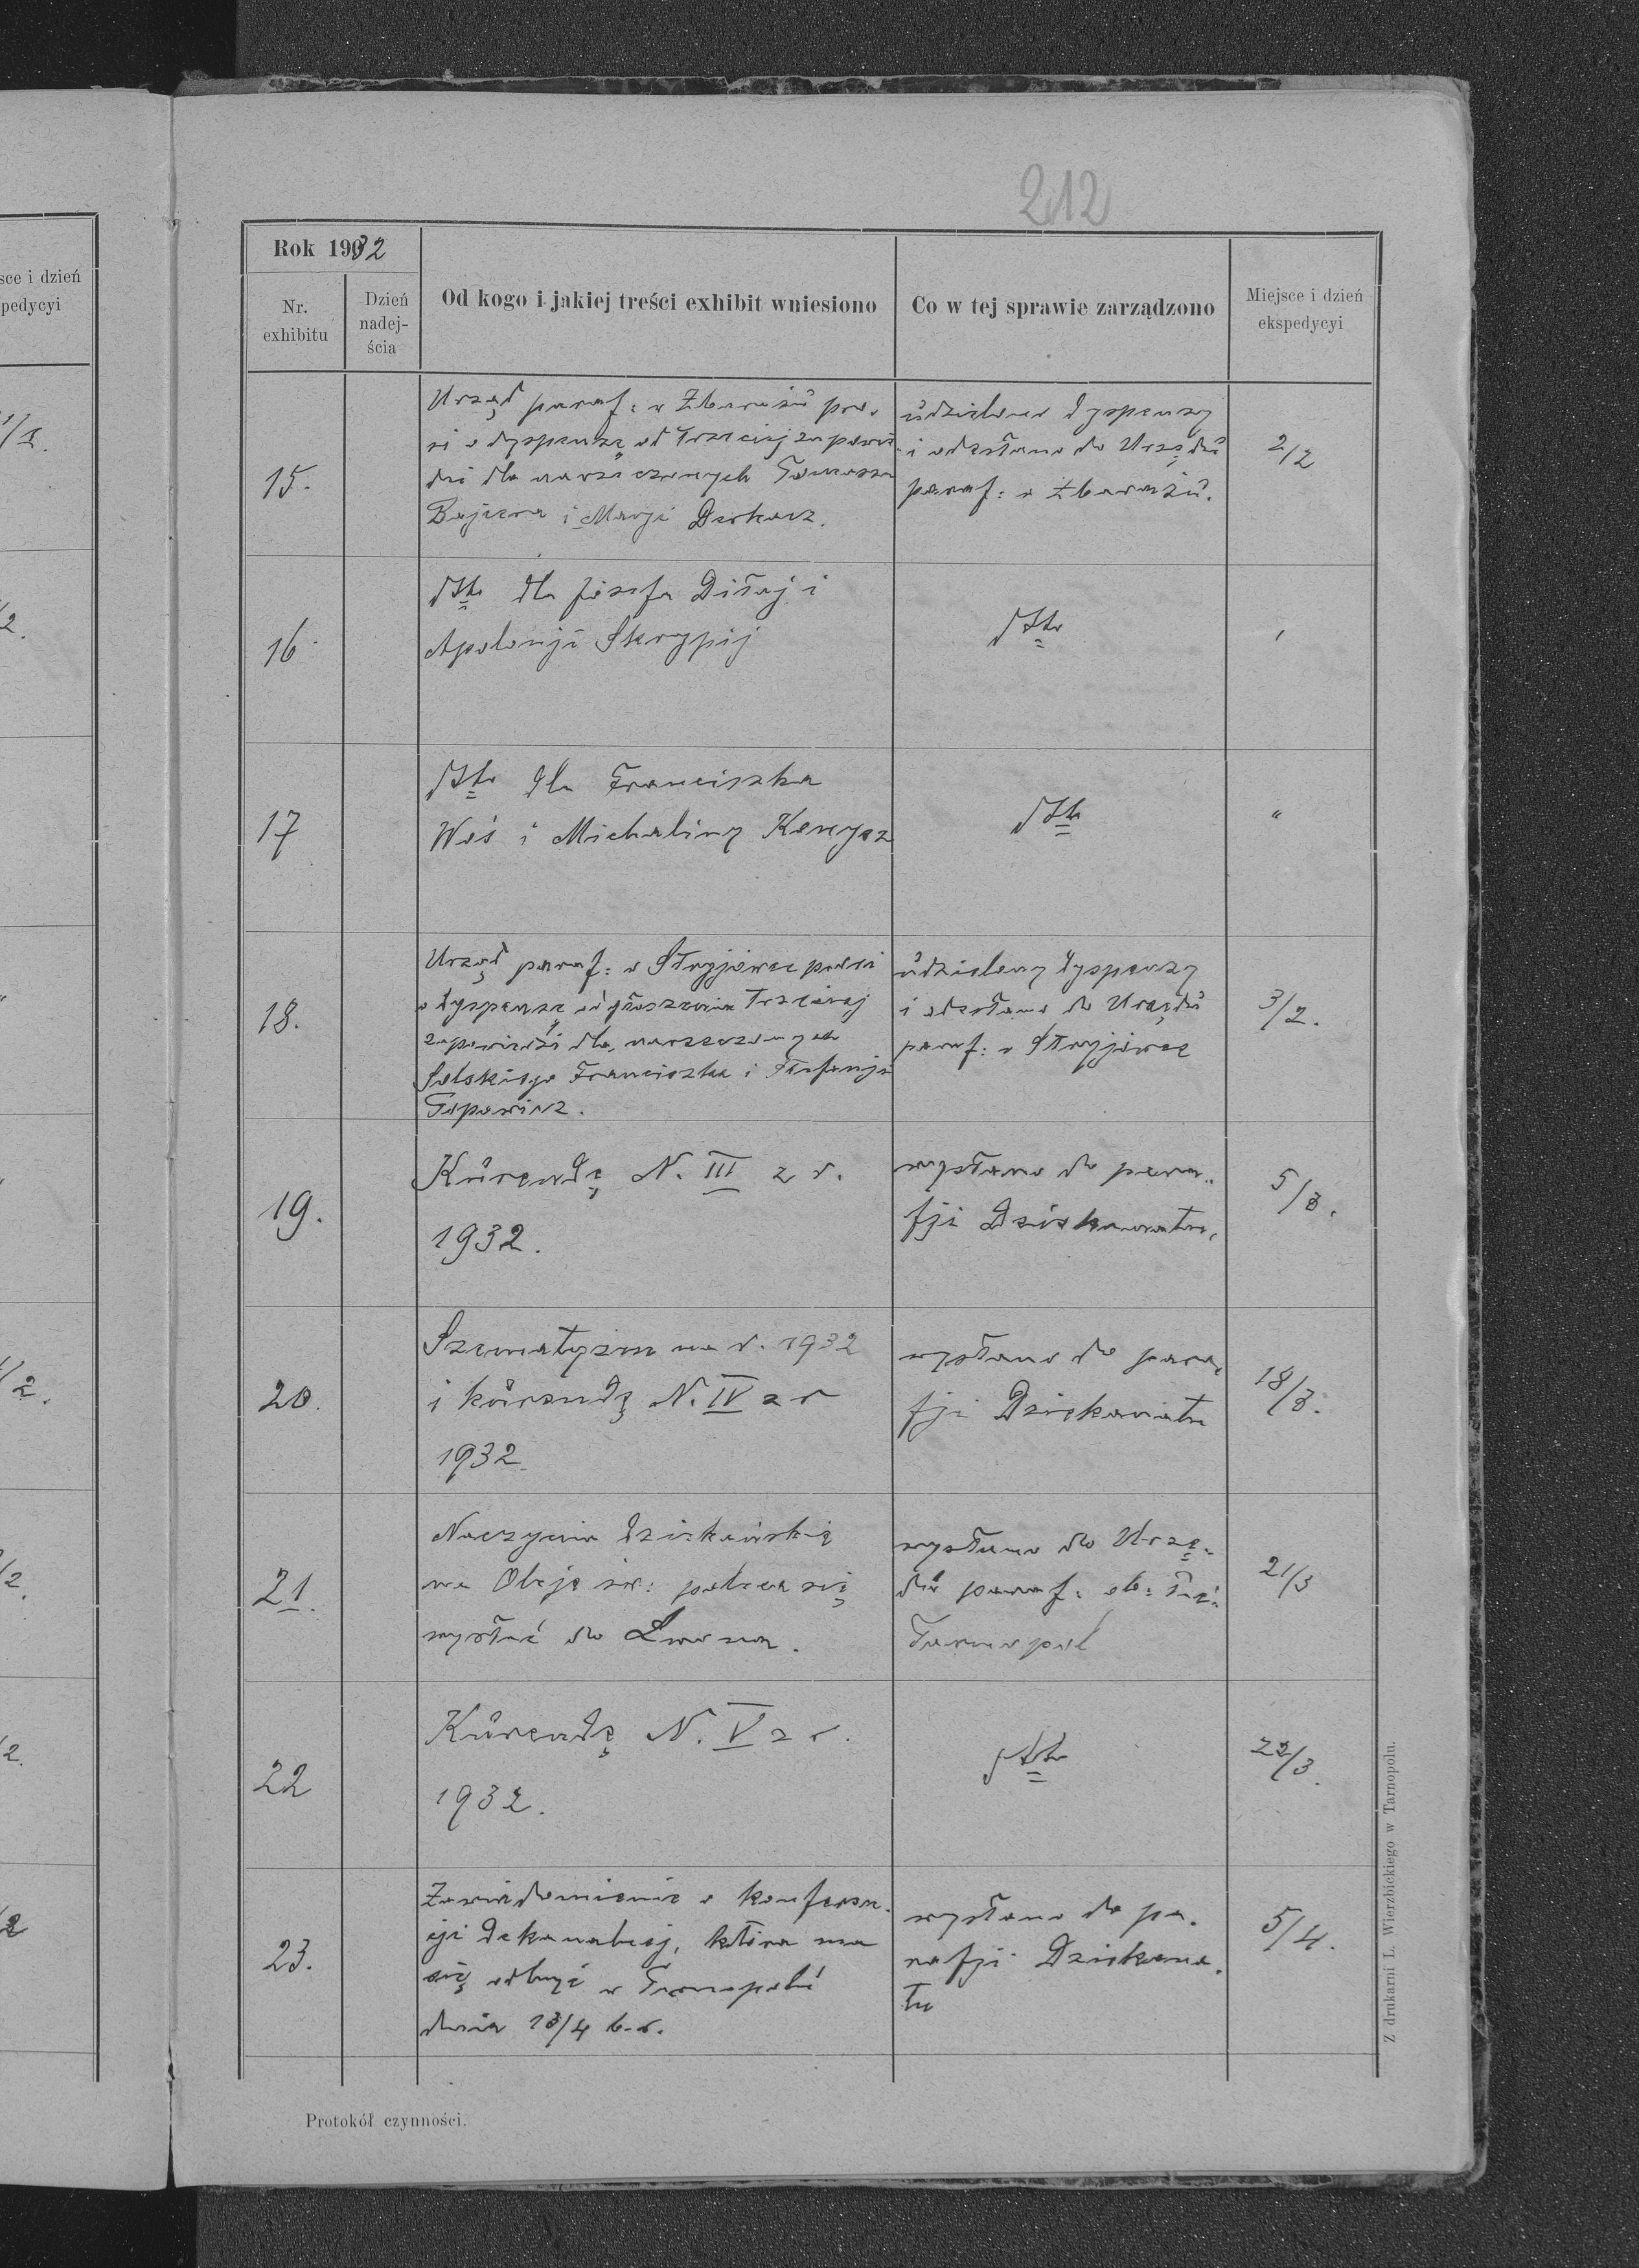 212
sce i dzień
pedycyi
Rok 1932
Nr.
exhibitu
Dzień
nadej-
ścia
Od kogo i jakiej treści exhibit wniesiono
Co w tej sprawie zarządzono
Miejsce i dzień
ekspedycyi
15.
Urząd paraf: w Zbarażu pro-
si o dyspenzę od trzeciej zapowie-
dzi dla narzeczonych Tomasza
i Marji Derkacz.
udzielono dyspenzy
i odesłano do Urzędu
paraf: w Zbarażu.
2/2
16
dtto dla Józefa Diłaj i
Apolonji Skrypij
dtto
17
dtto dla Franciszka
Woś i Michaliny
dtto
"
18.
Urząd paraf: w Stryjówce prosi
o dyspenzę od głoszenia trzeciej
zapowiedzi dla narzeczonych
Solskiego Franciszka i Stefanji
Popowicz.
udzielony dyspenzy
i odesłano do Urzędu
paraf: w Stryjówce
3/2.
19.
Kurendę N. III z r.
1932.
wysłano do para-
fji Dziekanatu.
5/3.
20.
Szematyzm na r. 1932
i kurendę N. IV z r
1932.
wysłano do para-
fji Dziekanatu
18/3.
21.
Naczynia dziekańskie
na Oleje św: poleca się
wysłać do Lwowa.
wysłano do Urzę-
du paraf: ob: łać:
Tarnopol
21/3
22
Kurendę N. V z r.
1932.
dtto
22/3.
23.
Zawiadomienie o konferen-
cji dekanalnej, która ma
się odbyć w Tarnopolu
dnia 13/4 b.r.
wysłano do pa-
rafji Dziekana-
tu
5/4.
Protokół czynności.
Z drukarni L. Wierzbickiego w Tarnopolu.